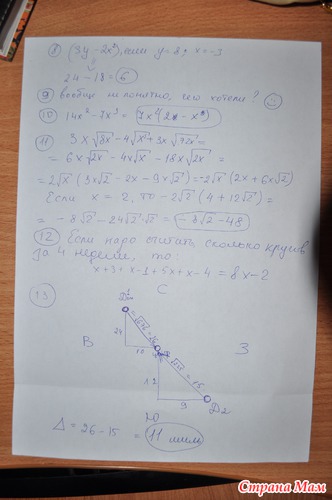 8 (3y - 2x²), если y = 8, x = -3
24 - 18 = 6
9 вообще непонятно, чего хотели?
10 14x² - 7x³ = 7x²(2 - x)
11 3 × √8x - 4√x + 3x √72x =
= 6 × √2x - 4x√x - 18x √2x =
= 2√x (3√2 - 2x - 9x√2) = -2√x (2x + 6x√2)
Если x = 2, то -2√2 (4 + 12√2) =
= -8√2 - 24√2·√2 = -8√2 - 48
12 Если надо считать, сколько кругов
за 4 недели, то:
x + 3 + x - 1 + 5x + x - 4 = 8x - 2
13
С
В
З
24
10
= 26
12
= 15
9
Д2
Ю
Δ = 26 - 15 = 11 миль
Страна Мам